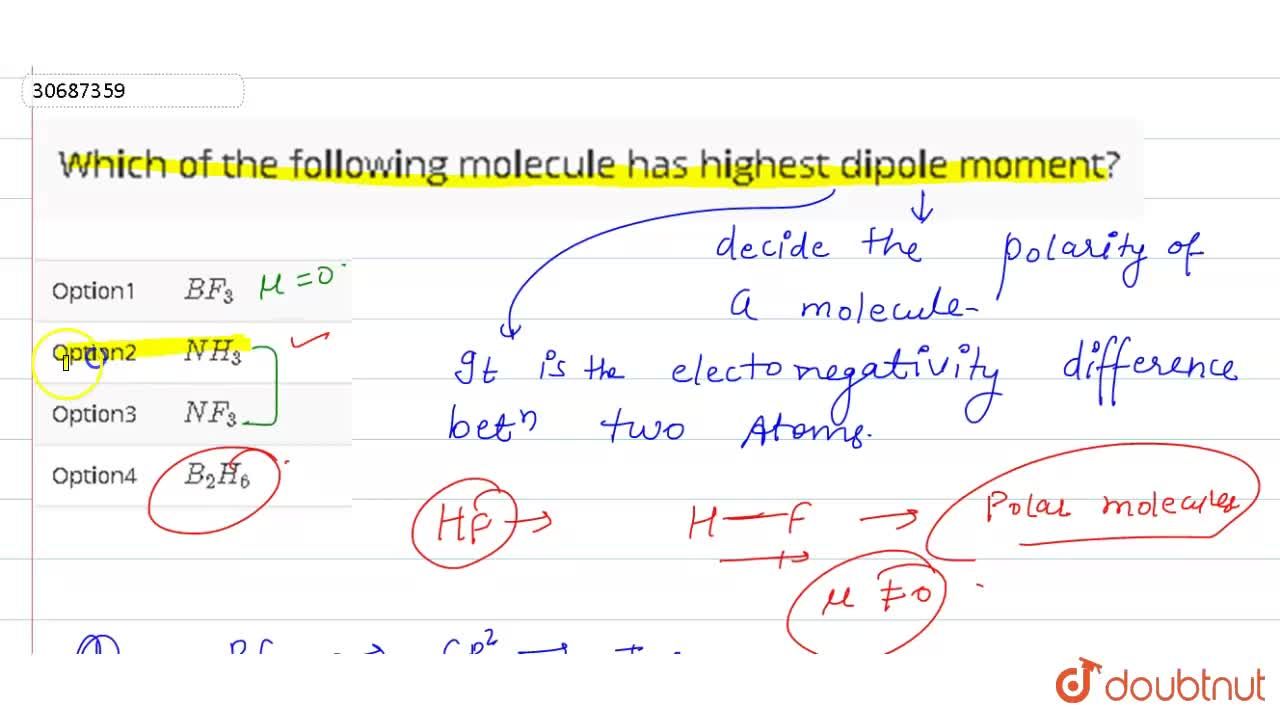 30687359
Which of the following molecule has highest dipole moment?
decide the polarity of
a molecule-
Option1 BF₃ μ = 0
Option2 NH₃
It is the electonegativity difference
Option3 NF₃
betⁿ two Atoms.
Option4 B₂H₆
HF → H—F → Polar molecules
μ ≠ 0
doubtnut